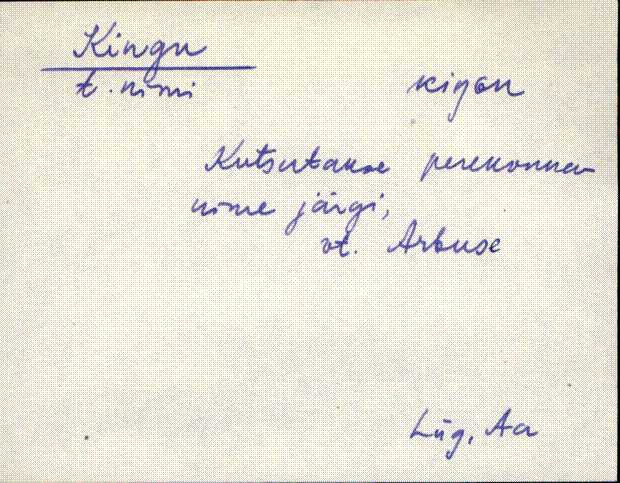 Kingu
t. nimi kigou
Kutsutakse perekonna-
nime järgi,
vt. Arbuse
Lüg, Aa